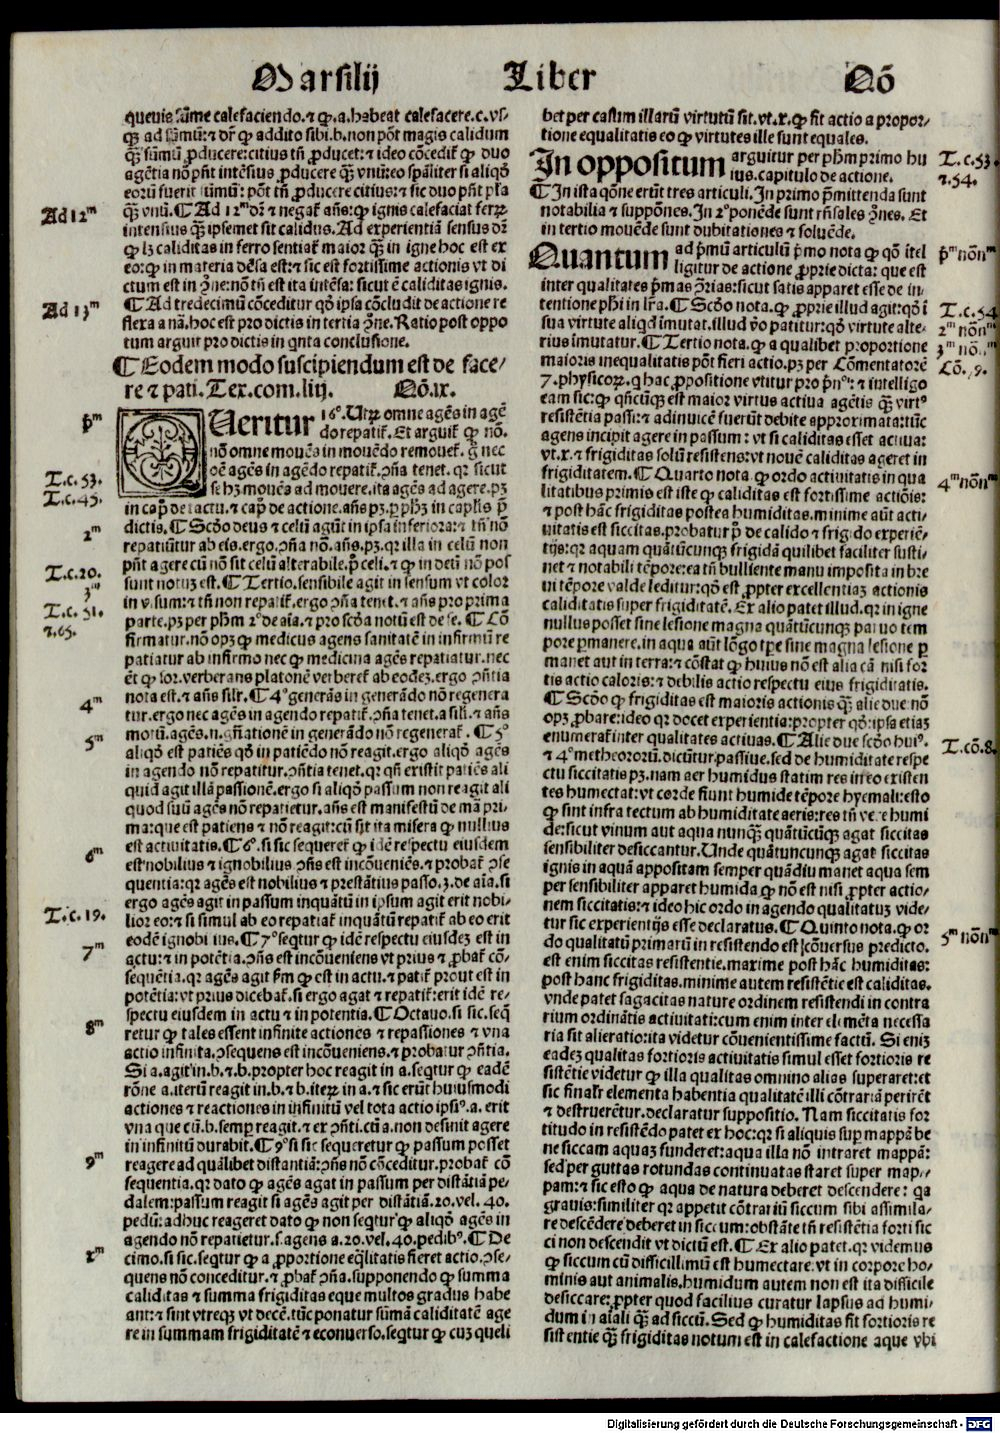 Marsilij Liber Qō
quevis sūme calefaciendo. ⁊ ꝙ .a. habeat calefacere .c. vs-
qꝫ ad sūmū: ⁊ dr̄ ꝙ addito sibi .b. non pōt magis calidum
qꝫ̄ sūmū ꝓducere: citius tn̄ ꝓducet: ⁊ ideo cōcedit᷑ ꝙ duo
agētia nō pn̄t intēsius ꝓducere qꝫ̄ vnū: eo sp̄aliter si aliqō
eorū fuerit sūmū: pōt tn̄ ꝓducere citius: ⁊ sic duo pn̄t pl̄a
qꝫ̄ vnū. ¶ Ad 12ᵐ dr̄: ⁊ negat᷑ an̄s: ꝙ ignis calefaciat ferrꝫ
intensius qꝫ̄ ipsemet sit calidus. Ad experientiā sensus dr̄
ꝙ lꝫ caliditas in ferro sentiat᷑ maior qꝫ̄ in igne hoc est ex
eo: ꝙ in materia dēsa est: ⁊ sic est fortissime actionis vt di
ctum est in ꝯne: nō tn̄ est ita intēsa: sicut ē caliditas ignis.
¶ Ad tredecimū cōceditur qō ipsa cōcludit de actione re
flexa a nā. hoc est pro dictis in tertia ꝯne. Ratio post oppo
tum arguit pro dictis in qnta conclusione.
¶ Eodem modo suscipiendum est de face/
re ⁊ pati. Tex. com. liij. Qō. ix.
Ueritur 16º. Utrꝫ omne agēs in agē
do repatit᷑. Et arguit᷑ ꝙ nō.
nō omne mouēs in mouēdo remouet᷑. g̊ nec
oē agēs in agēdo repatit᷑. ꝯn̄a tenet. qr sicut
se hꝫ mouēs ad mouere. ita agēs ad agere. pꝫ
in cap̊ de tactu. ⁊ cap̊ de actione. an̄s pꝫ. ꝑ ph̄ꝫ in capl̄is p̄
dictis. ¶ Scd̄o deus ⁊ celū agūt in ipsa inferiora: ⁊ tn̄ nō
repatiūtur ab eis. ergo. ꝯn̄a nō. an̄s. pꝫ. qr illa in celū non
pn̄t agere cū nō sit celū alterabile. p̊ celi. ⁊ ꝙ in deū nō pos
sunt notuꝫ est. ¶ Tertio. sensibile agit in sensum vt color
in visum: ⁊ tn̄ non repatit᷑. ergo ꝯn̄a tenet. ⁊ an̄s pro prima
parte. pꝫ per ph̄m 2º de aīa. ⁊ pro scd̄a notū est de se. ¶ Cō
firmatur. nō opꝫ ꝙ medicus agens sanitatē in infirmū re
patiatur ab infirmo nec ꝙ medicina agēs repatiatur. nec
ēt ꝙ sor. verberans platonē verberet᷑ ab eodeꝫ. ergo ꝯn̄tia
nota est. ⁊ an̄s silr. ¶ 4º generās in generādo nō regenera
tur. ergo nec agēs in agendo repatit᷑. ꝯn̄a tenet. a sili. ⁊ an̄s
motū. agēs. n. gn̄ationē in generādo nō regenerat᷑. ¶ 5º
aliqō est patiēs qō in patiēdo nō reagit. ergo aliqō agēs
in agendo nō repatitur. ꝯn̄tia tenet. qr qn̄ existit patiēs ali
quid agit illā passionē. ergo si aliqō passum non reagit ali
quod suū agēs nō repatietur. an̄s est manifestū de mā pri-
ma: que est patiens ⁊ nō reagit: cū sit ita misera ꝙ nullius
est actiuitatis. ¶ 6º. si sic sequeret᷑ ꝙ idē respectu eiusdem
est nobilius ⁊ ignobilius ꝯn̄s est incōueniēs. ⁊ probat᷑ ꝯse
quentia: qr agēs est nobilius ⁊ prestātius passo. 3. de aīa. si
ergo agēs agit in passum inquātū in ipsum agit erit nobi-
lior eo: ⁊ si simul ab eo repatiat᷑ inquātū repatit᷑ ab eo erit
eodē ignobilius. ¶ 7º seqtur ꝙ idē respectu eiusdeꝫ est in
actu: ⁊ in potētia. ꝯn̄s est incōueniens vt prius ⁊ ꝓbat᷑ cō-
sequētia. qr agēs agit s̄m ꝙ est in actu. ⁊ patit᷑ prout est in
potētia: vt prius dicebat᷑. si ergo agat ⁊ repatit᷑: erit idē re-
spectu eiusdem in actu ⁊ in potentia. ¶ Octauo. si sic. seq̄
retur ꝙ tales essent infinite actiones ⁊ repassiones ⁊ vna
actio infinita. ꝯsequens est incōueniens. ⁊ probatur ꝯn̄tia.
Si .a. agit in .b. ⁊ .b. propter hoc reagit in a. seqtur ꝙ eadē
rōne a. iterū reagit in .b. ⁊ b. iterꝫ in a. ⁊ sic erūt huiusmodi
actiones ⁊ reactiones in infinitū vel tota actio ipsiº. a. erit
vna que cū .b. semp reagit. ⁊ ex ꝯn̄ti. cū a. non desinit agere
in infinitū durabit. ¶ 9º si sic sequeretur ꝙ passum posset
reagere ad quālibet distantiā: ꝯn̄s nō cōceditur. probat᷑ cō
sequentia. qr dato ꝙ agēs agat in passum per distātiā pe-
dalem: passum reagit si agēs agit per distātiā. 20. vel. 40.
pedū: adhuc reageret dato ꝙ non seqtur ꝙ aliqō agēs in
agendo nō repatietur. s. agens a. 20. vel. 40. pedibº. ¶ De
cimo. si sic. seqtur ꝙ a ꝓportione eq̄litatis fieret actio. ꝯse-
quens nō conceditur. ⁊ ꝓbat᷑ ꝯn̄a. supponendo ꝙ summa
caliditas ⁊ summa frigiditas eque multos gradus habe
ant: ⁊ sint vtreqꝫ vt decē. tūc ponatur sūmā caliditatē age
re in summam frigiditatē ⁊ econuerso. seqtur ꝙ cuꝫ queli
Ad 12ᵐ
Ad 13ᵐ
p̄ᵐ
T. c. 53.
T. c. 45.
2ᵐ
T. c. 20.
3ᵐ
T. c. 51.
⁊ 65.
4ᵐ
5ᵐ
6ᵐ
T. c. 19.
7ᵐ
8ᵐ
9ᵐ
xᵐ
bet per casum illarū virtutū sit. vt. x. ꝙ sit actio a propor/
tione equalitatis eo ꝙ virtutes ille sunt equales.
In oppositum arguitur per ph̄m primo hu
ius. capitulo de actione.
¶ In ista qōne erūt tres articuli. In primo p̄mittenda sunt
notabilia ⁊ suppōnes. In 2º ponēde sunt rn̄sales ꝯnes. Et
in tertio mouēde sunt dubitationes ⁊ soluēde.
Quantum ad p̄mū articulū p̄mo nota ꝙ qō itel
ligitur de actione ꝓprie dicta: que est
inter qualitates p̄mas ꝯrias: sicut satis apparet esse de in/
tentione ph̄i in lr̄a. ¶ Scd̄o nota. ꝙ ꝓprie illud agit: qō i
sua virtute aliqd imutat. illud v̄o patitur: qō virtute alte/
rius imutatur. ¶ Tertio nota. ꝙ a qualibet proportione
maioris inequalitatis pōt fieri actio. pꝫ per Cōmentatorē
7. physicoꝝ. q hac ꝓpositione vtitur pro p̄nº: ⁊ intelligo
eam sic: ꝙ qn̄cūqꝫ est maior virtus actiua agētis qꝫ̄ virtº
resistētia passi: ⁊ adinuicē fuerūt debite approximata: tūc
agens incipit agere in passum: vt si caliditas esset actiua:
vt. x. ⁊ frigiditas solū resistens: vt nouē caliditas ageret in
frigiditatem. ¶ Quarto nota. ꝙ ordo actiuitatis in qua
litatibus primis est iste ꝙ caliditas est fortissime actiōis:
⁊ post hāc frigiditas postea humiditas. minime aūt acti/
uitatis est siccitas. probatur p̊ de calido ⁊ frigido experiē/
tijs: qr aquam quātūcunqꝫ frigidā quilibet faciliter susti/
net ⁊ notabili tēpore: ea tn̄ bulliente manu imposita in bre
ui tēpore valde leditur: qō est ꝓpter excellentiaꝫ actionis
caliditatis super frigiditatē. Ex alio patet illud. qr in igne
nullus posset sine lesione magna quātūcunqꝫ paruo tem
pore ꝑmanere. in aqua aūt lōgo tp̄e sine magna lesione ꝑ
manet aut in terra: ⁊ cōstat ꝙ huius nō est alia cā nisi for
tis actio caloris: ⁊ debilis actio respectu eius frigiditatis.
¶ Scd̄o ꝙ frigiditas est maioris actionis qꝫ̄ alie due nō
opꝫ ꝓbare: ideo qr docet experientia: propter qō: ipsa etiaꝫ
enumerat᷑ inter qualitates actiuas. ¶ Alie due scd̄o huiº.
⁊ 4º metheororū. dicūtur passiue. sed de humiditate respe
ctu siccitatis pꝫ. nam aer humidus statim res in eo existen
tes humectat: vt corde fiunt humide tēpore hyemali: esto
ꝙ sint infra tectum ab humiditate aeris: res tn̄ vere humi
de: sicut vinum aut aqua nunqꝫ̄ quātūcūqꝫ agat siccitas
sensibiliter desiccantur. Unde quātuncunqꝫ agat siccitas
ignis in aquā appositam semper quādiu manet aqua sem
per sensibiliter apparet humida ꝙ nō est nisi ꝓpter actio/
nem siccitatis: ⁊ ideo hic ordo in agendo qualitatuꝫ vide/
tur sic experientijs esse declaratus. ¶ Quinto nota. ꝙ or
do qualitatū primarū in resistendo est ꝯuersus predicto.
est enim siccitas resistentie. maxime post hāc humiditas:
post hanc frigiditas. minime autem resistētie est caliditas.
vnde patet sagacitas nature ordinem resistendi in contra
rium ordinātis actiuitati: cum enim inter elemēta necessa
ria sit alteratio: ita videtur cōuenientissime factū. Si eniꝫ
eadeꝫ qualitas fortioris actiuitatis simul esset fortioris re
sistētie videtur ꝙ illa qualitas omnino alias superaret: et
sic finalr̄ elementa habentia qualitatē illi cōtrariā perirēt
⁊ destruerētur. declaratur suppositio. Nam siccitatis for
titudo in resistēdo patet ex hoc: qr si aliquis sup mappā be
ne siccam aquaꝫ funderet: aqua illa nō intraret mappā:
sed per guttas rotundas continuatas staret super map/
pam: ⁊ sic esto ꝙ aqua de natura deberet descendere: qa
grauis: similiter qr appetit cōtrariū siccum sibi assimila/
re descēdere deberet in siccum: obstāte tn̄ resistētia forti sic
ci non descendit vt dictū est. ¶ Ex alio patet. qr videmus
ꝙ siccum cū difficillimū est humectare. vt in corpore ho/
minis aut animalis. humidum autem non est ita difficile
desiccare: ꝓpter quod facilius curatur lapsus ad humi/
dum in aīali qꝫ̄ ad siccū. Sed ꝙ humiditas sit fortioris re
sistentie qꝫ̄ frigiditas notum est in calefactione aque vbi
T. c. 53.
⁊. 54.
p̄ᵐ nōnᵐ
T. c. 54
2ᵐ nōnᵐ
3ᵐ nō
Cō. 9.
4ᵐ nōnᵐ
T. cō. 8.
5ᵐ nōnᵐ
Digitalisierung gefördert durch die Deutsche Forschungsgemeinschaft - DFG